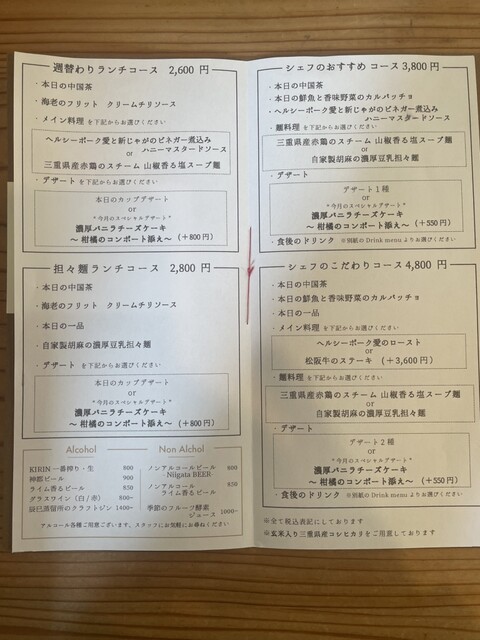 週替わりランチコース 2,600 円
・本日の中国茶
・海老のフリット クリームチリソース
・メイン料理 を下記からお選びください
ヘルシーポーク愛と新じゃがのビネガー煮込み
ハニーマスタードソース
or
三重県産赤鶏のスチーム 山椒香る塩スープ麺
・デザート を下記からお選びください
本日のカップデザート
or
*今月のスペシャルデザート*
濃厚バニラチーズケーキ
〜 柑橘のコンポート添え〜 (+800円)
担々麺ランチコース 2,800 円
・本日の中国茶
・海老のフリット クリームチリソース
・本日の一品
・自家製胡麻の濃厚豆乳担々麺
・デザート を下記からお選びください
本日のカップデザート
or
*今月のスペシャルデザート*
濃厚バニラチーズケーキ
〜 柑橘のコンポート添え〜 (+800円)
Alcohol
KIRIN 一番搾り・生 800
神都ビール 900
ライム香るビール 850
グラスワイン (白/赤) 800~
辰巳蒸留所のクラフトジン 1400~
Non Alchol
ノンアルコールビール 800
-Niigata BEER-
ノンアルコール 850
ライム香るビール
季節のフルーツ酵素 1000~
ジュース
アルコール各種ご用意ございます、スタッフにお気軽にお尋ねください
シェフのおすすめ コース 3,800 円
・本日の中国茶
・本日の鮮魚と香味野菜のカルパッチョ
・ヘルシーポーク愛と新じゃがのビネガー煮込み
ハニーマスタードソース
・麺料理 を下記からお選びください
三重県産赤鶏のスチーム 山椒香る塩スープ麺
or
自家製胡麻の濃厚豆乳担々麺
・デザート
デザート1種
or
*今月のスペシャルデザート*
濃厚バニラチーズケーキ
〜 柑橘のコンポート添え〜 (+550円)
・食後のドリンク ※別紙の Drink menu よりお選びください
シェフのこだわりコース 4,800 円
・本日の中国茶
・本日の鮮魚と香味野菜のカルパッチョ
・本日の一品
・メイン料理 を下記からお選びください
ヘルシーポーク愛のロースト
or
松阪牛のステーキ (+3,600円)
・麺料理 を下記からお選びください
三重県産赤鶏のスチーム 山椒香る塩スープ麺
or
自家製胡麻の濃厚豆乳担々麺
・デザート
デザート2種
or
*今月のスペシャルデザート*
濃厚バニラチーズケーキ
〜 柑橘のコンポート添え〜 (+550円)
・食後のドリンク ※別紙の Drink menu よりお選びください
※全て税込表記にしております
※玄米入り三重県産コシヒカリをご用意しております